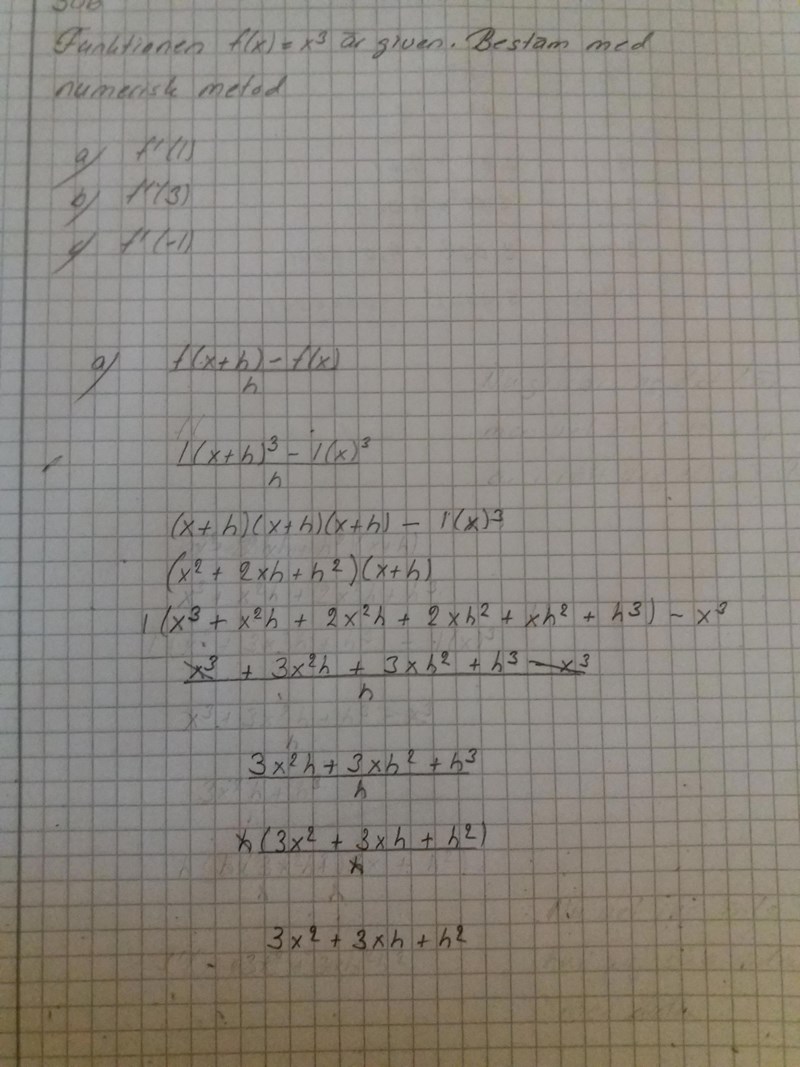 Funktionen f(x) = x³ är given. Bestäm med
numerisk metod
a) f'(1)
b) f'(3)
c) f'(-1)
a) f(x+h) - f(x)
h
1(x+h)³ - 1(x)³
h
(x+h)(x+h)(x+h) - 1(x)³
(x² + 2xh + h²)(x+h)
1(x³ + x²h + 2x²h + 2xh² + xh² + h³) - x³
x³ + 3x²h + 3xh² + h³ - x³
h
3x²h + 3xh² + h³
h
h(3x² + 3xh + h²)
h
3x² + 3xh + h²